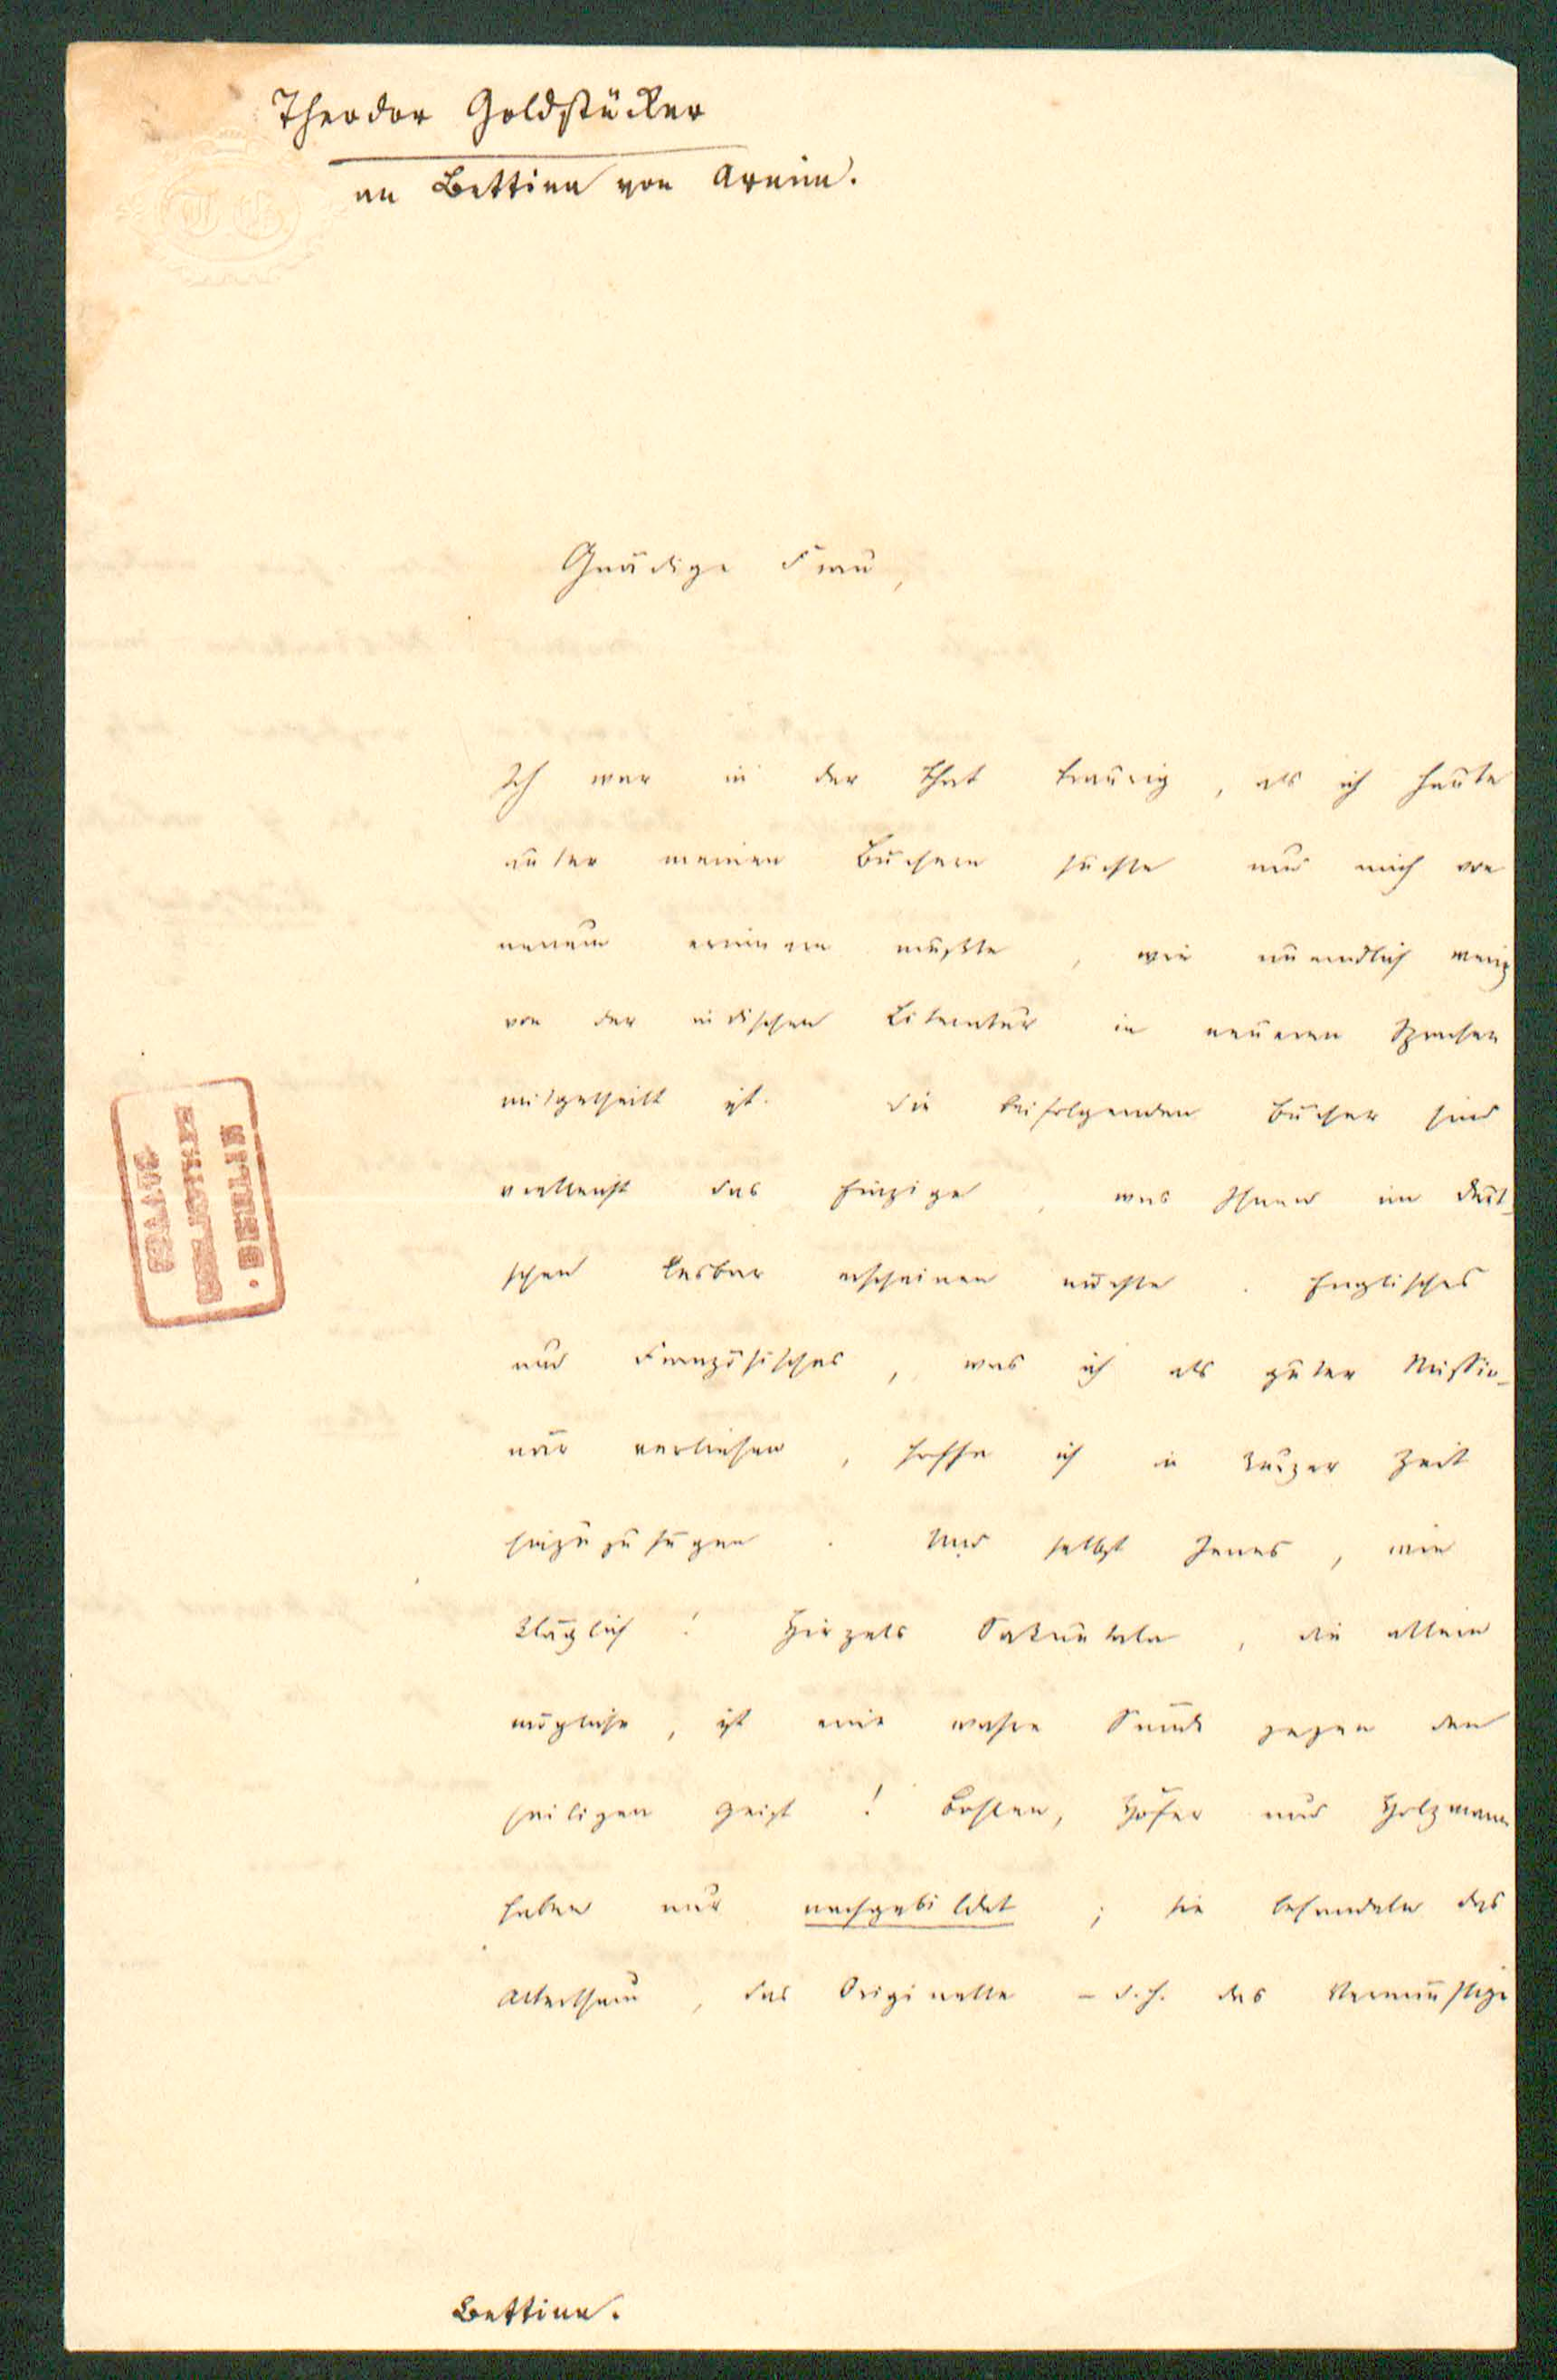 Theodor Goldstücker
an Bettina von Arnim.
Gnädige Frau,
Ich war in der That traurig, als ich heute
unter meinen Büchern suchte und mich von
neuem erinnern mußte, wie unendlich wenig
von der indischen Literatur in neueren Sprachen
mitgetheilt ist. Die beifolgenden Bücher sind
vielleicht das Einzige, was Ihnen im Deut-
schen lesbar erscheinen möchte. Englisches
und Französisches, was ich als guter Missio-
när verliehen, hoffe ich in kurzer Zeit
hinzuzufügen. Und selbst Jenes, wie
kläglich! Hirzels Sakuntala, die allein
mögliche, ist eine wahre Sünde gegen den
heiligen Geist! Bohlen, Höfer und Holzmann
haben nur nachgebildet; sie behandeln das
Alterthum, das Originelle – d.h. das Vernünftige
Bettina.